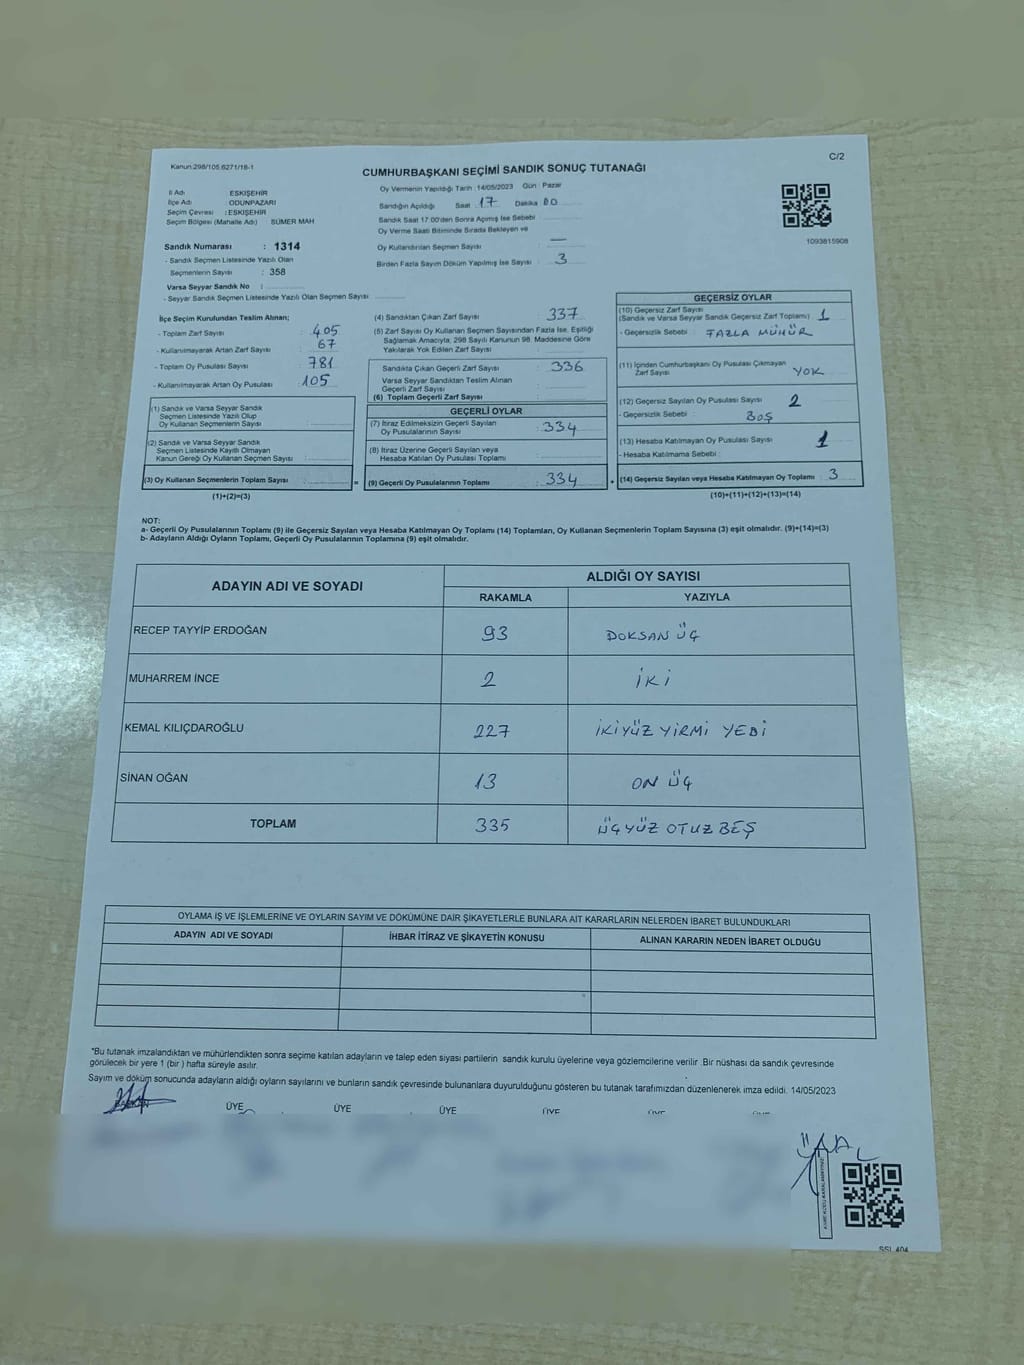 Kanun:298/105 6271/18-1
C/2
CUMHURBAŞKANI SEÇİMİ SANDIK SONUÇ TUTANAĞI
İl Adı ESKİŞEHİR
İlçe Adı : ODUNPAZARI
Seçim Çevresi : ESKİŞEHİR
Seçim Bölgesi (Mahalle Adı) SÜMER MAH
Sandık Numarası : 1314
- Sandık Seçmen Listesinde Yazılı Olan
Seçmenlerin Sayısı : 358
Varsa Seyyar Sandık No :
- Seyyar Sandık Seçmen Listesinde Yazılı Olan Seçmen Sayısı
Oy Vermenin Yapıldığı Tarih : 14/05/2023 Gün : Pazar
Sandığın Açıldığı Saat 17 Dakika 00
Sandık Saat 17:00'den Sonra Açımış İse Sebebi
Oy Verme Saati Bitiminde Sırada Bekleyen ve
Oy Kullandırılan Seçmen Sayısı : —
Birden Fazla Sayım Döküm Yapılmış İse Sayısı : 3
1093815908
İlçe Seçim Kurulundan Teslim Alınan;
- Toplam Zarf Sayısı : 405
- Kullanılmayarak Artan Zarf Sayısı : 67
- Toplam Oy Pusulası Sayısı : 781
- Kullanılmayarak Artan Oy Pusulası : 105
(1) Sandık ve Varsa Seyyar Sandık
Seçmen Listesinde Yazılı Olup
Oy Kullanan Seçmenlerin Sayısı :
(2) Sandık ve Varsa Seyyar Sandık
Seçmen Listesinde Kayıtlı Olmayan
Kanun Gereği Oy Kullanan Seçmen Sayısı :
(3) Oy Kullanan Seçmenlerin Toplam Sayısı : =
(1)+(2)=(3)
(4) Sandıktan Çıkan Zarf Sayısı : 337
(5) Zarf Sayısı Oy Kullanan Seçmen Sayısından Fazla İse, Eşitliği
Sağlamak Amacıyla, 298 Sayılı Kanunun 98. Maddesine Göre
Yakılarak Yok Edilen Zarf Sayısı :
Sandıkta Çıkan Geçerli Zarf Sayısı : 336
Varsa Seyyar Sandıktan Teslim Alınan
Geçerli Zarf Sayısı
(6) Toplam Geçerli Zarf Sayısı :
GEÇERLİ OYLAR
(7) İtiraz Edilmeksizin Geçerli Sayılan
Oy Pusulalarının Sayısı : 334
(8) İtiraz Üzerine Geçerli Sayılan veya
Hesaba Katılan Oy Pusulası Toplamı :
(9) Geçerli Oy Pusulalarının Toplamı : 334 +
GEÇERSİZ OYLAR
(10) Geçersiz Zarf Sayısı :
(Sandık ve Varsa Seyyar Sandık Geçersiz Zarf Toplamı) 1
- Geçersizlik Sebebi : FAZLA MÜHÜR
(11) İçinden Cumhurbaşkanı Oy Pusulası Çıkmayan
Zarf Sayısı : YOK
(12) Geçersiz Sayılan Oy Pusulası Sayısı : 2
- Geçersizlik Sebebi : BOŞ
(13) Hesaba Katılmayan Oy Pusulası Sayısı : 1
- Hesaba Katılmama Sebebi :
(14) Geçersiz Sayılan veya Hesaba Katılmayan Oy Toplamı : 3
(10)+(11)+(12)+(13)=(14)
NOT:
a- Geçerli Oy Pusulalarının Toplamı (9) ile Geçersiz Sayılan veya Hesaba Katılmayan Oy Toplamı (14) Toplamları, Oy Kullanan Seçmenlerin Toplam Sayısına (3) eşit olmalıdır. (9)+(14)=(3)
b- Adayların Aldığı Oyların Toplamı, Geçerli Oy Pusulalarının Toplamına (9) eşit olmalıdır.
ADAYIN ADI VE SOYADI ALDIĞI OY SAYISI
RAKAMLA YAZIYLA
RECEP TAYYİP ERDOĞAN 93 DOKSAN ÜÇ
MUHARREM İNCE 2 İKİ
KEMAL KILIÇDAROĞLU 227 İKİYÜZ YİRMİ YEDİ
SİNAN OĞAN 13 ON ÜÇ
TOPLAM 335 ÜÇYÜZ OTUZ BEŞ
OYLAMA İŞ VE İŞLEMLERİNE VE OYLARIN SAYIM VE DÖKÜMÜNE DAİR ŞİKAYETLERLE BUNLARA AİT KARARLARIN NELERDEN İBARET BULUNDUKLARI
ADAYIN ADI VE SOYADI İHBAR İTİRAZ VE ŞİKAYETİN KONUSU ALINAN KARARIN NEDEN İBARET OLDUĞU
*Bu tutanak imzalandıktan ve mühürlendikten sonra seçime katılan adayların ve talep eden siyasi partilerin sandık kurulu üyelerine veya gözlemcilerine verilir .Bir nüshası da sandık çevresinde
görülecek bir yere 1 (bir ) hafta süreyle asılır.
Sayım ve döküm sonucunda adayların aldığı oyların sayılarını ve bunların sandık çevresinde bulunanlara duyurulduğunu gösteren bu tutanak tarafımızdan düzenlenerek imza edildi. 14/05/2023
BAŞKAN ÜYE ÜYE ÜYE ÜYE ÜYE ÜYE
ÜNAL
SSİ 404